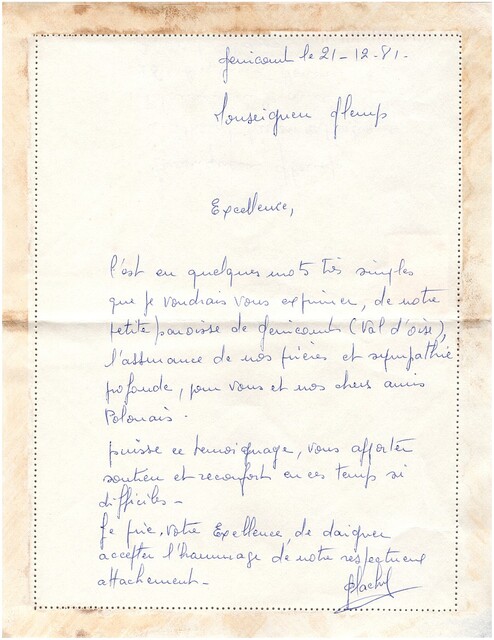 Genicourt le 21-12-81.
Monseigneur Glemp
Excellence,
C'est en quelques mots très simples
que je voudrais vous exprimer, de notre
petite paroisse de Genicourt (Val d'oise),
l'assurance de nos prières et sympathie
profonde, pour vous et nos chers amis
Polonais.
puisse ce temoignage, vous apporter
soutien et reconfort en ces temps si
difficiles -
Je prie, votre Excellence, de daigner
accepter l'hommage de notre respectueux
attachement -